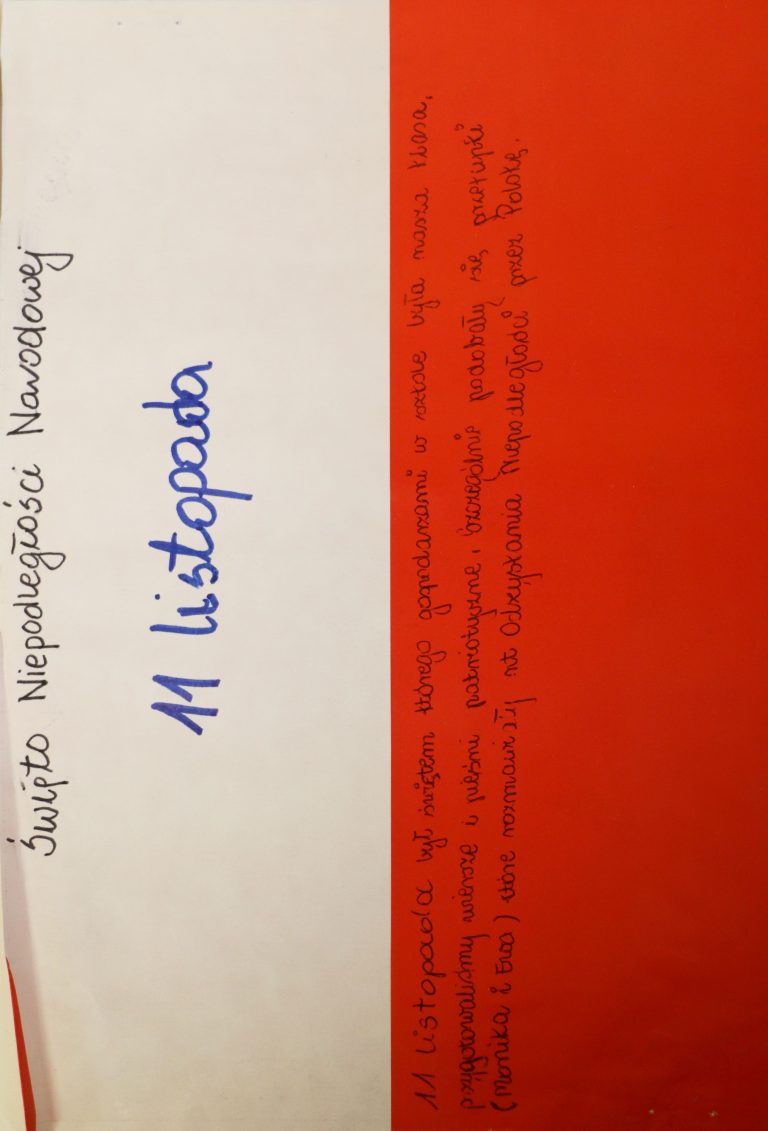 Święto Niepodległości Narodowej
11 listopada
11 listopada był świętem którego gospodarzami w szkole była nasza klasa,
przygotowaliśmy wiersze i pieśni patriotyczne, szczególnie podobały się przekupki
(Monika i Ewa) które rozmawiały nt Odzyskania Niepodległości przez Polskę.